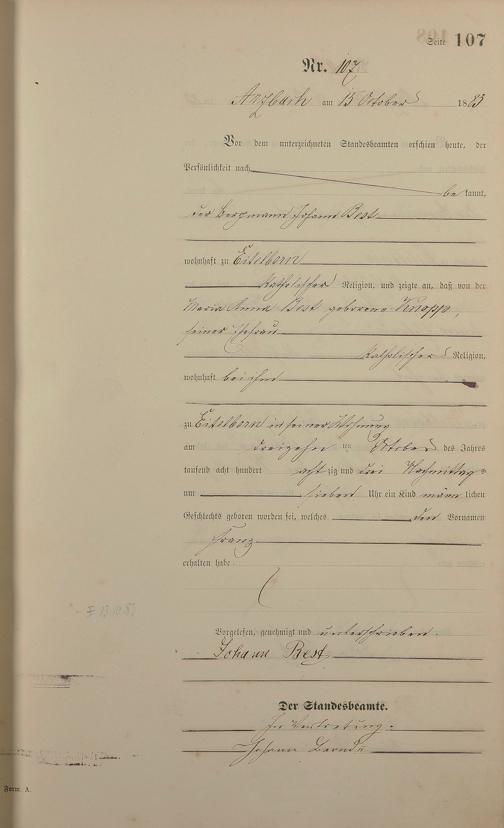 Seite 107
Nr. 107
Arzbach am 15 October 1883
Vor dem unterzeichneten Standesbeamten erschien heute, der
Persönlichkeit nach
be kannt,
der Bergmann Johann Best
wohnhaft zu Eitelborn
katholischer Religion, und zeigte an, daß von der
Maria Anna Best geborene Knopp,
seiner Ehefrau
katholischer Religion,
wohnhaft bei ihm
zu Eitelborn in seiner Wohnung
am dreizehn ten October des Jahres
tausend acht hundert acht zig und drei Nachmittags
um sieben Uhr ein Kind männ lichen
Geschlechts geboren worden sei, welches den Vornamen
Franz
erhalten habe
Vorgelesen, genehmigt und unterschrieben.
Johann Best
Der Standesbeamte.
In Vertretung.
Johann
Form. A.